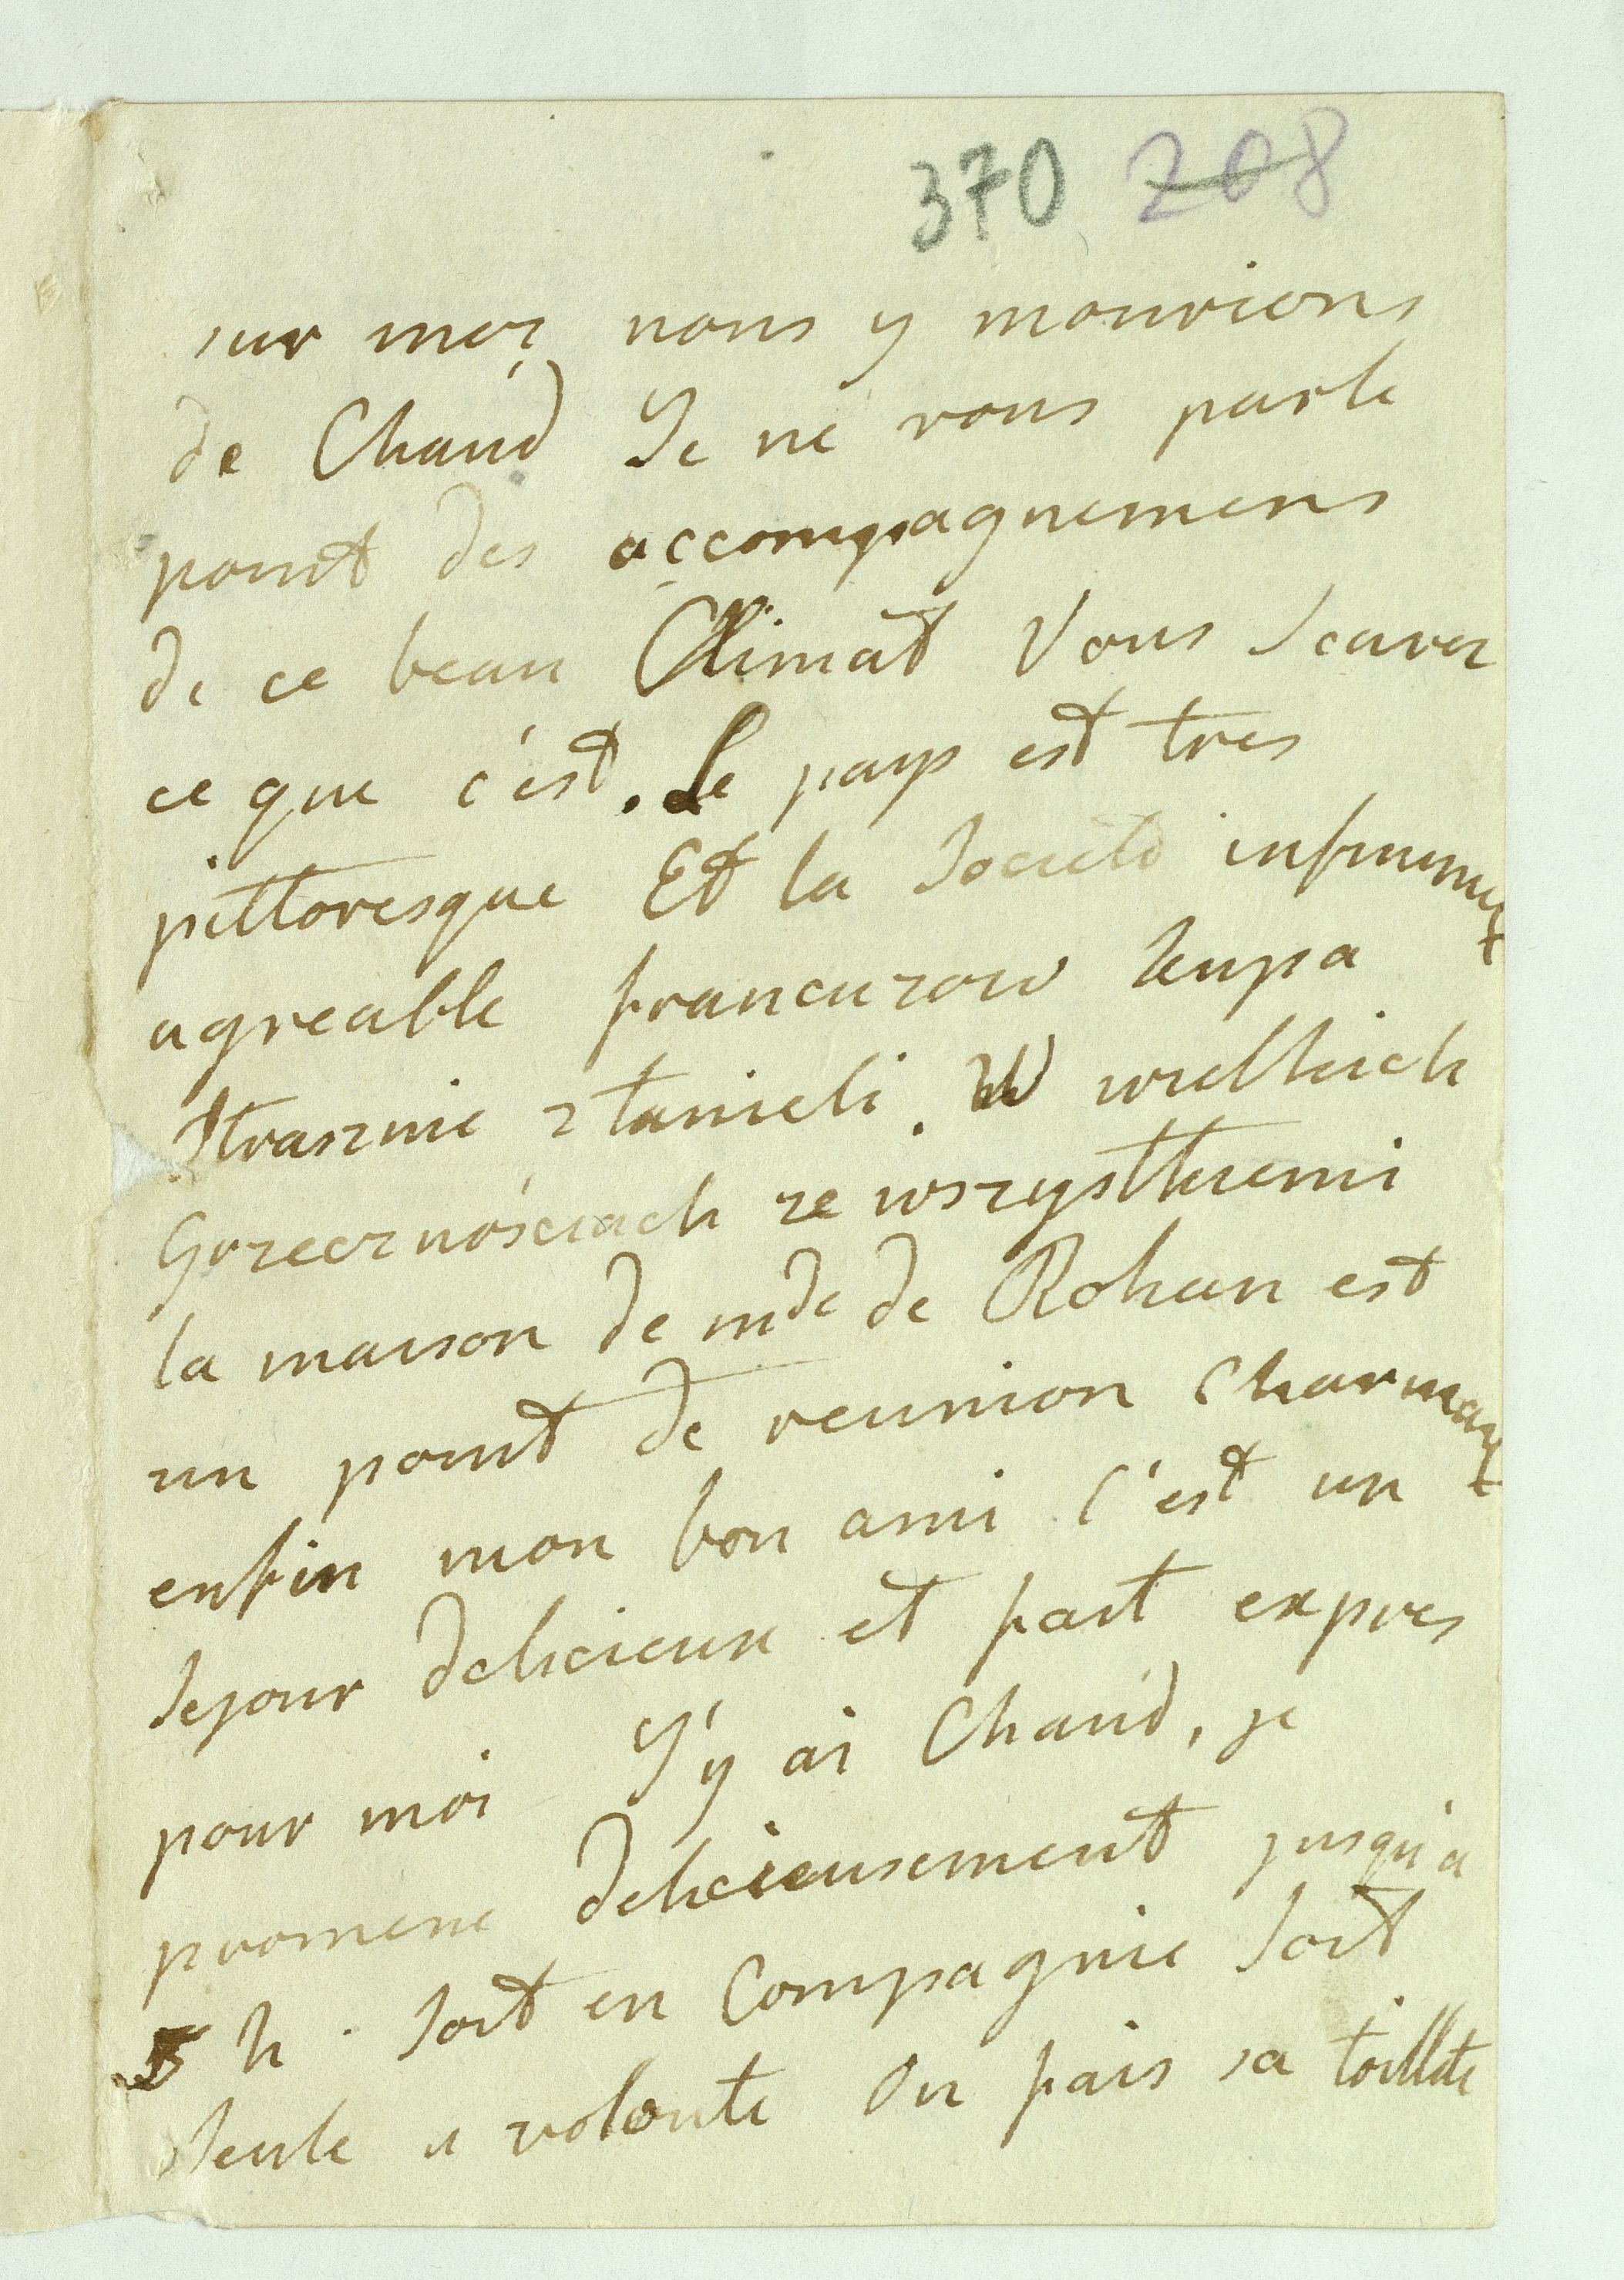 370 208
sur moi nous y mourions
de Chaud Je ne vous parle
point des accompagnemens
de ce beau Climat Vous Scavez
ce que c'est. Le pays est tres
pittoresque Et la Societé infiniment
agreable francuzow kupa
Strasznie ztanieli. W wielkich
Grzecznościach ze wszystkiemi
la maison de mde de Rohan est
un point de reunion Charmant
enfin mon bon ami C'est un
Sejour delicieux et fait expres
pour moi J'y ai Chaud, je
promene delicieusement jusqu'a
5 h. Soit en Compagnie Soit
Seule a volonte On fais sa toillete